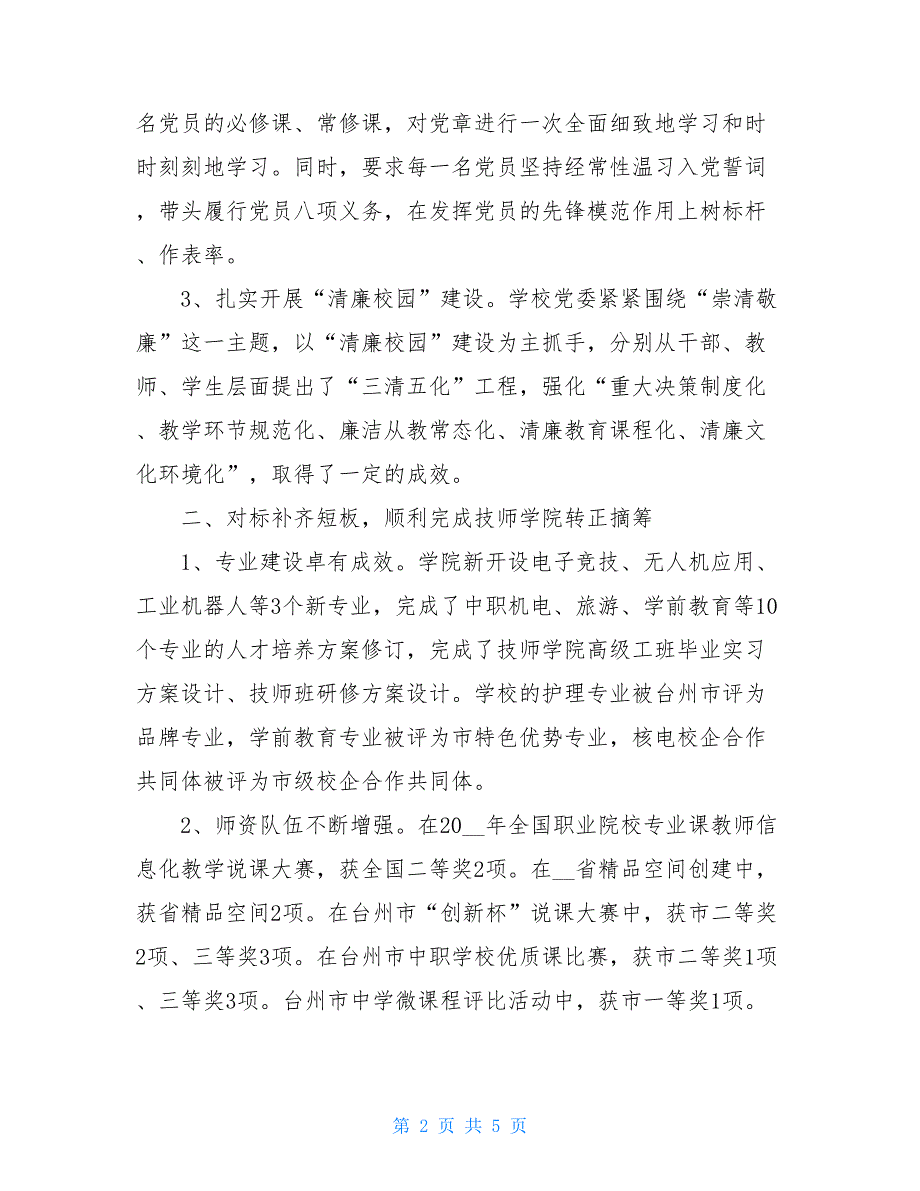 名党员的必修课、常修课，对党章进行一次全面细致地学习和时
时刻刻地学习。同时，要求每一名党员坚持经常性温习入党誓词
，带头履行党员八项义务，在发挥党员的先锋模范作用上树标杆
、作表率。
3、扎实开展“清廉校园”建设。学校党委紧紧围绕“崇清敬
廉”这一主题，以“清廉校园”建设为主抓手，分别从干部、教
师、学生层面提出了“三清五化”工程，强化“重大决策制度化
、教学环节规范化、廉洁从教常态化、清廉教育课程化、清廉文
化环境化”，取得了一定的成效。
二、对标补齐短板，顺利完成技师学院转正摘筹
1、专业建设卓有成效。学院新开设电子竞技、无人机应用、
工业机器人等3个新专业，完成了中职机电、旅游、学前教育等10
个专业的人才培养方案修订，完成了技师学院高级工班毕业实习
方案设计、技师班研修方案设计。学校的护理专业被台州市评为
品牌专业，学前教育专业被评为市特色优势专业，核电校企合作
共同体被评为市级校企合作共同体。
2、师资队伍不断增强。在20__年全国职业院校专业课教师信
息化教学说课大赛，获全国二等奖2项。在__省精品空间创建中，
获省精品空间2项。在台州市“创新杯”说课大赛中，获市二等奖
2项、三等奖3项。在台州市中职学校优质课比赛，获市二等奖1项
、三等奖3项。台州市中学微课程评比活动中，获市一等奖1项。
第 2 页 共 5 页